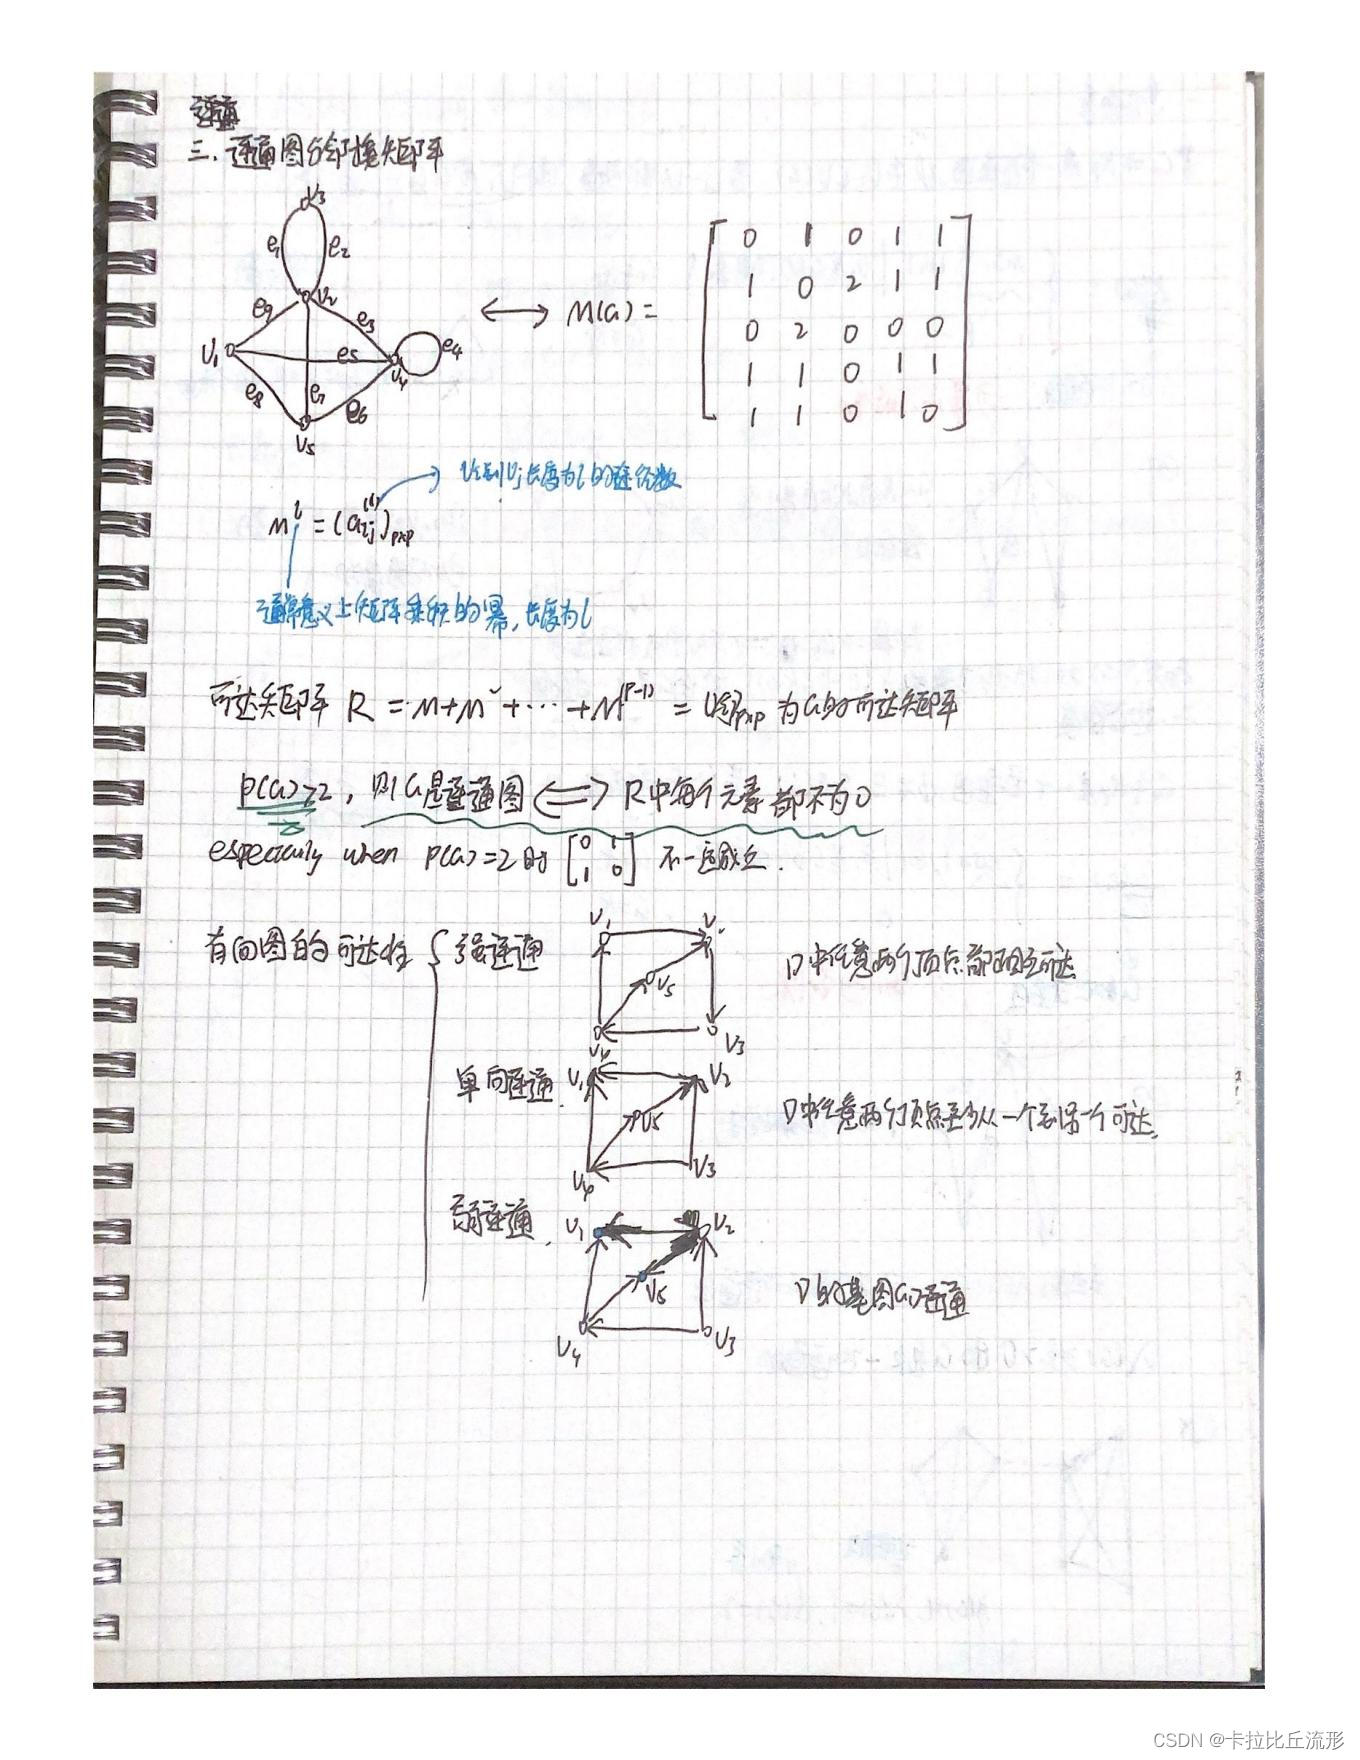 连通
三. 连通图与邻接矩阵
v3
e1 e2
v2
e9 e3
v1 e5 v4 e4
e8 e7 e6
v5
⟷ M(G) =
0 1 0 1 1
1 0 2 1 1
0 2 0 0 0
1 1 0 1 1
1 1 0 1 0
vi到vj长度为l的途径数
M^l = (a_ij^(l))_p×p
通常意义上矩阵乘积的幂,长度为l
可达矩阵 R = M+M²+⋯+M^(P-1) = [ ]_p×p 为G的可达矩阵
p(G)≥2, 则G是连通图 ⟺ R中每个元素都不为0
especially when p(G)=2时 [0 1
1 0] 不一定成立.
有向图的可达性 { 强连通
v1 v
v5
v4 v3
D中任意两个顶点都相互可达
单向连通.
v1 v2
v5
v4 v3
D中任意两个顶点至少从一个到另一个可达.
弱连通.
v1 v2
v5
v4 v3
D的基图G连通
CSDN @卡拉比丘流形